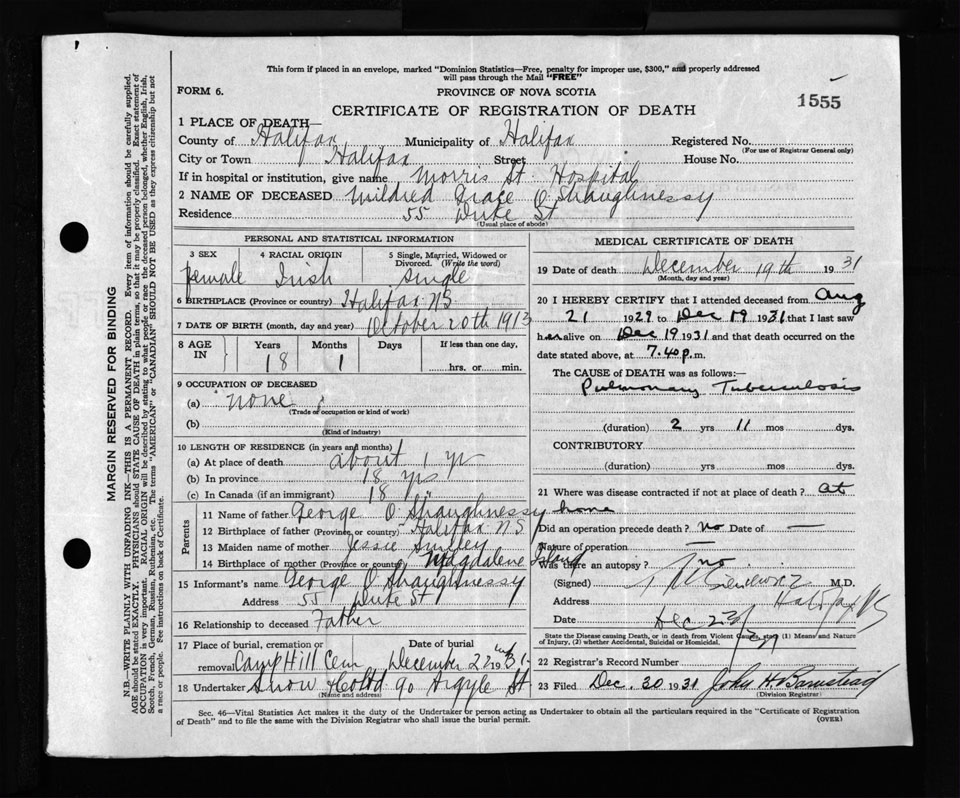 This form if placed in an envelope, marked "Dominion Statistics—Free, penalty for improper use, $300," and properly addressed
will pass through the Mail "FREE"
FORM 6.
PROVINCE OF NOVA SCOTIA
1555
CERTIFICATE OF REGISTRATION OF DEATH
1 PLACE OF DEATH—
County of Halifax Municipality of Halifax Registered No.
(For use of Registrar General only)
City or Town Halifax Street House No.
If in hospital or institution, give name Morris St. Hospital
2 NAME OF DECEASED Mildred Grace O'Shaughnessy
Residence 55 Duke St
(Usual place of abode)
PERSONAL AND STATISTICAL INFORMATION
3 SEX 4 RACIAL ORIGIN 5 Single, Married, Widowed or
Divorced. (Write the word)
female Irish single
6 BIRTHPLACE (Province or country) Halifax NS
7 DATE OF BIRTH (month, day and year) October 20th 1913
8 AGE IN Years Months Days If less than one day,
18 1 hrs. or min.
9 OCCUPATION OF DECEASED
(a) none
(Trade or occupation or kind of work)
(b)
(Kind of industry)
10 LENGTH OF RESIDENCE (in years and months)
(a) At place of death about 1 yr
(b) In province 18 yrs
(c) In Canada (if an immigrant) 18 "
Parents
11 Name of father George O'Shaughnessy
12 Birthplace of father (Province or country) Halifax NS
13 Maiden name of mother Jessie
14 Birthplace of mother (Province or country) Magdalene Island
15 Informant's name George O'Shaughnessy
Address 55 Duke St
16 Relationship to deceased Father
17 Place of burial, cremation or Date of burial
removal Camp Hill Cem December 22nd 1931
18 Undertaker Snow & Co Ltd 90 Argyle St
(Name and address)
MEDICAL CERTIFICATE OF DEATH
19 Date of death December 19th 1931
(Month, day and year)
20 I HEREBY CERTIFY that I attended deceased from Aug
21 1929 to Dec 19 1931 that I last saw
her alive on Dec 19 1931 and that death occurred on the
date stated above, at 7.40 p.m.
The CAUSE OF DEATH was as follows:
Pulmonary Tuberculosis
(duration) 2 yrs 11 mos dys.
CONTRIBUTORY
(duration) yrs. mos. dys.
21 Where was disease contracted if not at place of death? at
home
Did an operation precede death? no Date of —
Nature of operation —
Was there an autopsy? no
(Signed) M.D.
Address Halifax NS
Date Dec 23/31
State the Disease causing Death, or in death from Violent Causes, state (1) Means and Nature
of Injury, (2) whether Accidental, Suicidal or Homicidal.
22 Registrar's Record Number
23 Filed Dec. 30 1931 John H Barnstead
(Division Registrar)
Sec. 46—Vital Statistics Act makes it the duty of the Undertaker or person acting as Undertaker to obtain all the particulars required in the "Certificate of Registration
of Death" and to file the same with the Division Registrar who shall issue the burial permit.
(OVER)
MARGIN RESERVED FOR BINDING
N.B.—WRITE PLAINLY WITH UNFADING INK—THIS IS A PERMANENT RECORD. Every item of information should be carefully supplied.
AGE should be stated EXACTLY. PHYSICIANS should STATE CAUSE OF DEATH in plain terms, so that it may be properly classified. Exact statement of
OCCUPATION is very important. RACIAL ORIGIN will be described by stating to what people or race the deceased person belonged, whether English, Irish,
Scotch, French, German, Russian, Ruthenian, etc. The terms "AMERICAN" or "CANADIAN" SHOULD NOT BE USED as they express citizenship but not
a race or people. See instructions on back of Certificate.